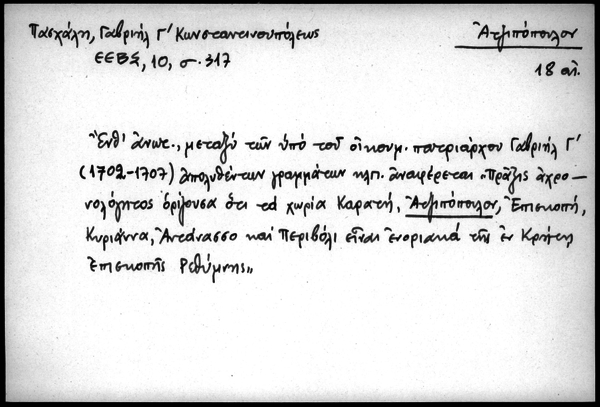 Πασχάλη, Γαβριήλ Γ' Κωνσταντινουπόλεως
Ἀτζιπόπουλον
ΕΕΒΣ, 10, σ. 317
18 αἰ.
Ἔνθ' ἀνωτ., μεταξύ τῶν ὑπό τοῦ οἰκουμ. πατριάρχου Γαβριήλ Γ'
(1702-1707) ἀπολυθέντων γραμμάτων κλπ. ἀναφέρεται "Πρᾶξις ἀχρο-
νολόγητος ὁρίζουσα ὅτι τά χωρία Καρατή, Ἀτζιπόπουλον, Ἐπισκοπή,
Κυριάννα, Ἀτσάνασσο καί Περιβόλι εἶναι ἐνοριακά τῆς ἐν Κρήτῃ
Ἐπισκοπῆς Ρεθύμνης"